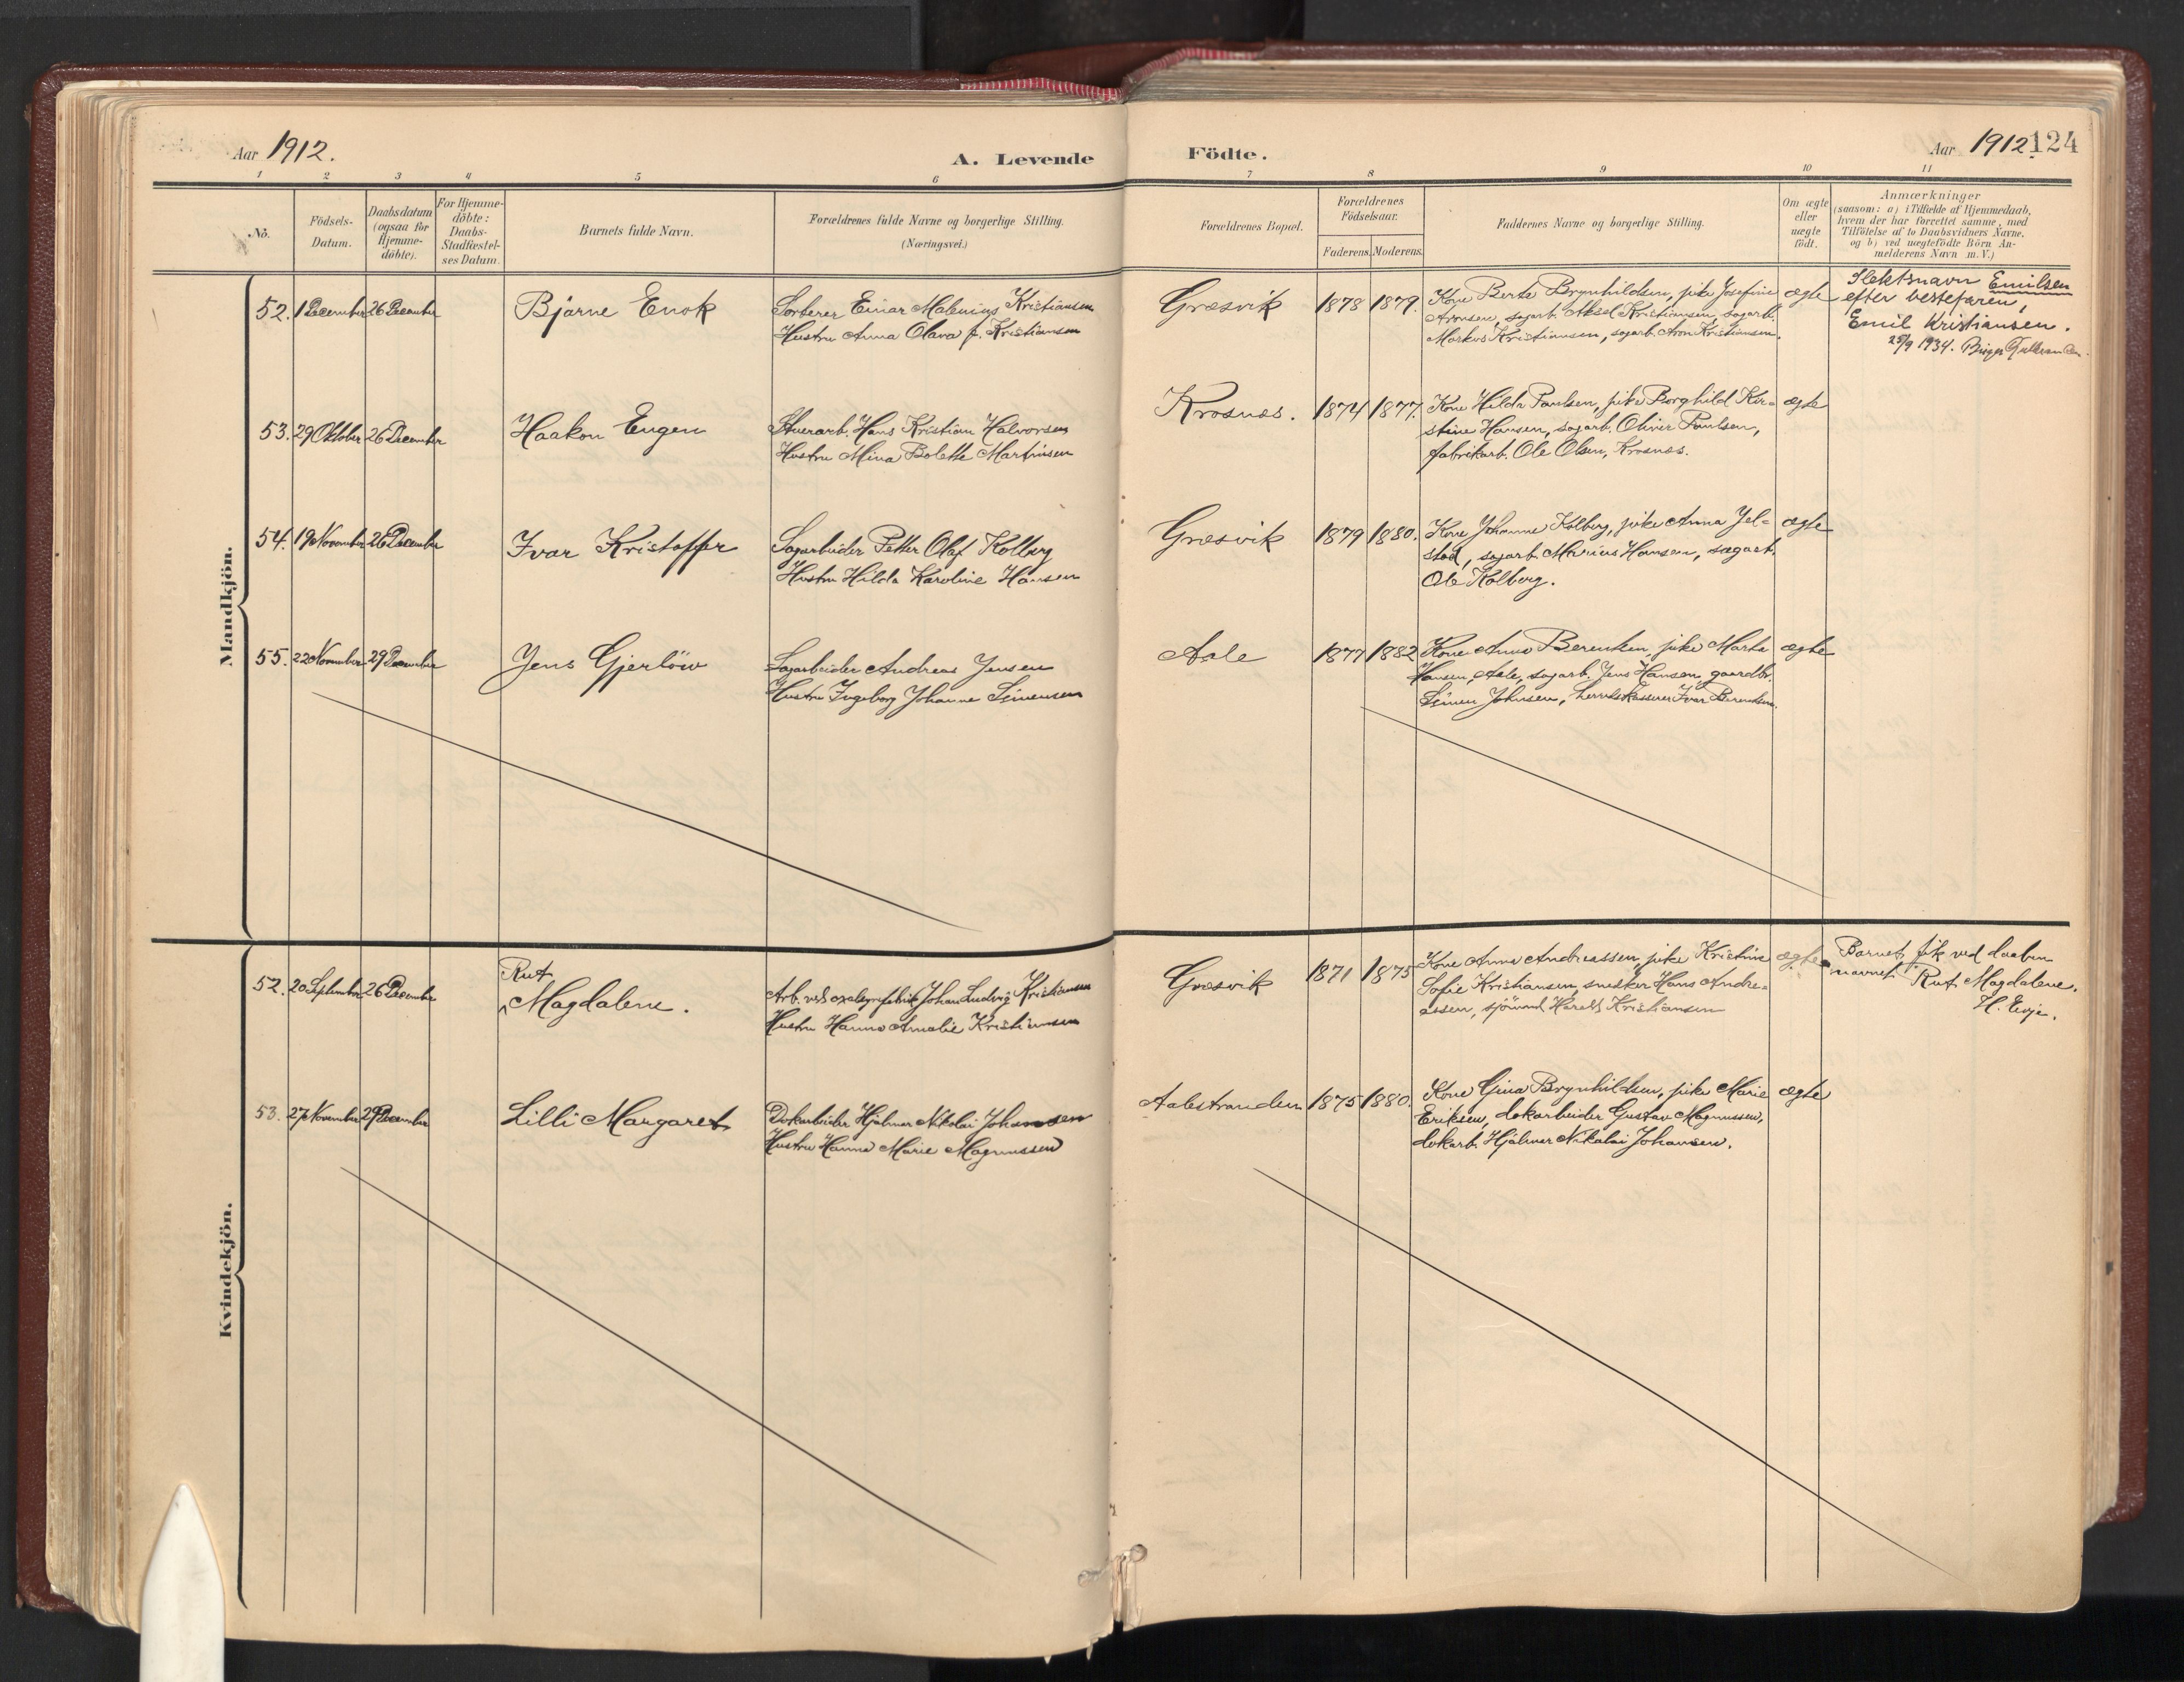 Aar 1912.
A. Levende Födte.
Aar 1912. 124
1 2 3 4 5 6 7 8 9 10 11
No.
Födsels-Datum.
Daabsdatum (ogsaa for Hjemme-döbte).
For Hjemme-döbte: Daabs-Stadfæstel-ses Datum.
Barnets fulde Navn.
Forældrenes fulde Navne og borgerlige Stilling.
(Næringsvei.)
Forældrenes Bopæl.
Forældrenes Födselsaar.
Faderens. Moderens.
Faddernes Navne og borgerlige Stilling.
Om ægte eller uægte födt.
Anmærkninger
(saasom: a) i Tilfælde af Hjemmedaab,
hvem der har forrettet samme, med
Tilföielse af to Daabsvidners Navne,
og b) ved uægtefödte Börn An-
melderens Navn m.V.)
Mandkjön.
52. 1 December 26 December
Bjarne Enok
Sorterer Einar Malenius Kristiansen
Hustru Anna Olava f. Kristiansen
Græsvik 1878 1879.
Kone Berte Brynhildsen, pike Josefine
Aronsen, sagarb. Aksel Kristiansen, sagarb.
Markus Kristiansen, sagarb. Aron Kristiansen.
ægte
Slektsnavn Emilsen
efter bestefaren,
Emil Kristiansen.
25/9 1934. Birger
53. 29 Oktober 26 December
Haakon Eugen
Stuerarb. Hans Kristian Halvorsen
Hustru Mina Bolette Martinsen
Krosnæs. 1874 1877.
Kone Hilda Paulsen, pike Borghild Kir-
stine Hansen, sagarb. Oliver Paulsen,
fabrikarb. Ole Olsen, Krosnæs.
ægte
54. 19 November 26 December
Ivar Kristoffer
Sagarbeider Petter Olaf Kolberg
Hustru Hilda Karoline Hansen
Græsvik 1879 1880.
Kone Johanne Kolberg, pike Anna Jel-
stad, sagarb. Marius Hansen, sagarb.
Ole Kolberg.
ægte
55. 22 November 29 December
Jens Gjerlöw
Sagarbeider Andreas Jensen
Hustru Ingeborg Johanne Simensen
Aale 1877 1882
Kone Anna Berentzen, pike Marta
Hansen, Aale, sagarb. Jens Hansen, gaardbr.
Simen Johnsen, herredskasserer Ivar Berentsen.
ægte
Kvindekjön.
52. 20 September 26 December
Rut
Magdalene.
Arb. ved oxalsyrefabrik Johan Ludvig Kristiansen
Hustru Hanna Amalie Kristiansen
Græsvik 1871 1875
Kone Anna Andreassen, pike Kristine
Sofie Kristiansen, snekker Hans Andre-
assen, sjömand Harald Kristiansen
ægte
Barnet fik ved daaben
navnet: Rut Magdalene.
H. Evje.
53. 27 November 29 December
Lilli Margaret
Dokarbeider Hjalmar Nikolai Johansen
Hustru Hanna Marie Magnussen
Aalestranden 1875 1880.
Kone Gina Brynhildsen, pike Marie
Eriksen, dokarbeider Gustav Magnussen,
dokarb. Hjalmar Nikolai Johansen.
ægte